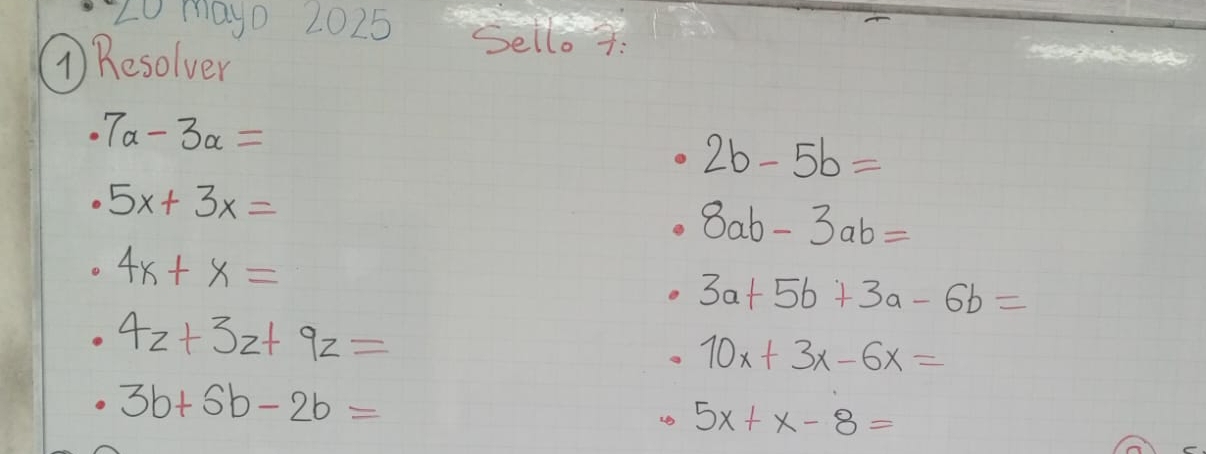 20 mayo 2025
Sello 7:
1 Resolver
• 7a - 3a =
• 5x + 3x =
• 4x + x =
• 4z + 3z + 9z =
• 3b + 6b - 2b =
• 2b - 5b =
• 8ab - 3ab =
• 3a + 5b + 3a - 6b =
• 10x + 3x - 6x =
• 5x + x - 8 =